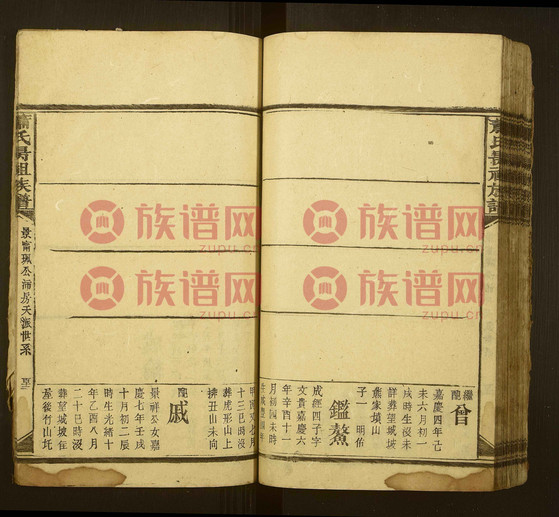 蕭氏房祖族譜
繼配
會
嘉慶四年己
未六月初一
戌時生沒未
詳葬望城坡
蕭家墳山
子一 明佑
鑑鰲
成經四子字
文貴嘉慶六
年辛酉十一
月初四未時
十三巳時沒
葬虎形山上
排丑山未向
配
戚
景祥公女嘉
慶七年壬戌
十月初二辰
時生光緒十
年乙酉八月
二十巳時沒
葬望城坡在
屋後竹山圫
蕭氏房祖族譜
族谱网
zupu.cn
族谱网
zupu.cn
族谱网
zupu.cn
族谱网
zupu.cn